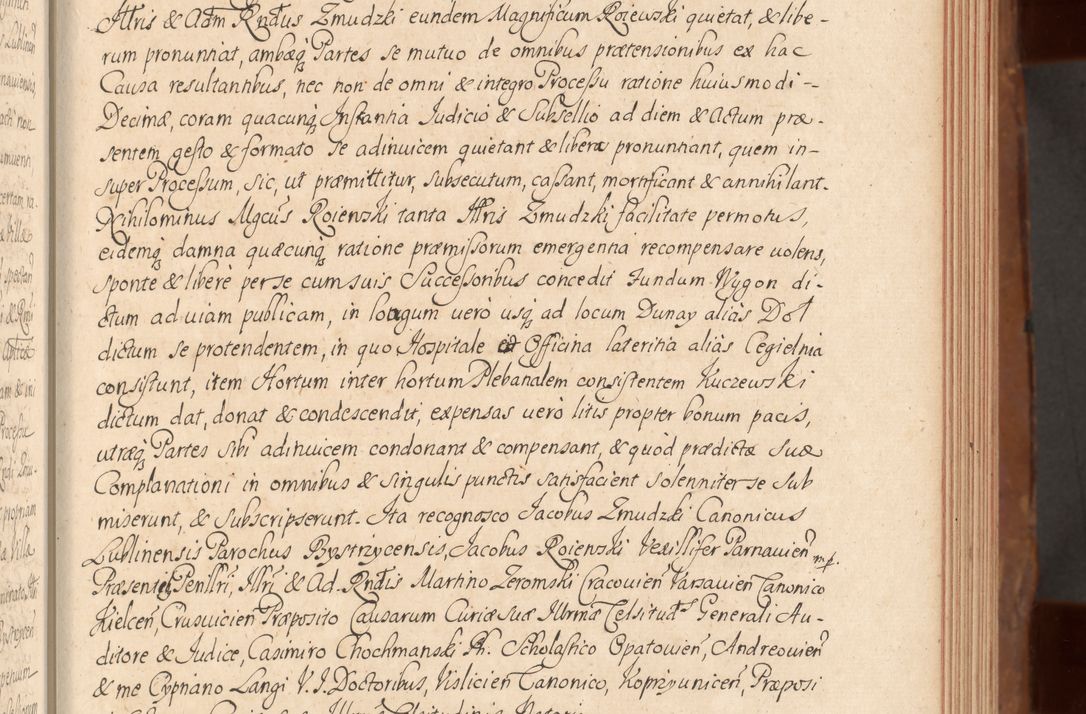 Illris & Adm Rndus Zmudzki eundem Magnificum Roiewski quietat, & libe-
rum pronuntiat, ambæq Partes se mutuo de omnibus prætensionibus ex hac
Causa resultantibus, nec non de omni & integro Processu ratione huiusmodi -
Decimæ, coram quacunq Instantia Judicio & Subsellio ad diem & Actum præ-
sentem gesto & formato se adinuicem quietant & liberè pronuntiant, quem in-
super Processum, sic, ut præmittitur, subsecutum, cassant, mortificant & annihilant.
Nihilominus Mgcus Roiewski tanta Illris Zmudzki facilitate permotus,
eidemq damna quæcunq ratione præmissorum emergentia recompensare volens,
sponte & liberè per se cum suis Successoribus concedit Fundum Wygon di-
ctum ad uiam publicam, in longum uerò usq ad locum Dunay aliàs Dol
dictum se protendentem, in quo Hospitale et Officina lateritia aliàs Cegielnia
consistunt, item Hortum inter hortum Plebanalem consistentem Kuczewski
dictum dat, donat & condescendit, expensas uerò litis propter bonum pacis,
utræq Partes sibi adinuicem condonant & compensant, & quòd prædictæ suæ
Complanationi in omnibus & singulis punctis satisfacient solenniter se sub
miserunt, & subscripserunt. Ita recognosco Jacobus Zmudzki Canonicus
Lublinensis Parochus Bystrzycensis, Jacobus Roiewski Vexillifer Parnauien mp.
Præsentib Penllri, Illri & Ad. Rndis Martino Zeromski Cracouien Varsauien Canonico
Kielcen, Crusuicien Præposito Causarum Curiæ suæ Illrmæ Celsituds Generali Au-
ditore & Judice, Casimiro Chochmanski Ph. Scholastico Opatouien, Andreouien
& me Cypriano Langi V. I. Doctoribus, Visliciên Canonico, Koprzyunicen, Præposi